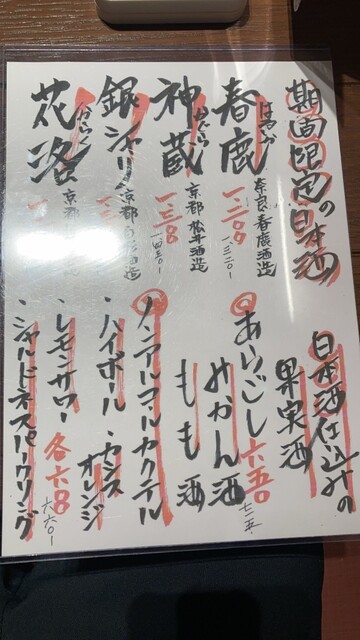 期間限定の日本酒
はるしか
春鹿
奈良 春鹿酒造
一、二〇〇
一、三二〇-
かぐら
神蔵
京都 松井酒造
一、三〇〇
一四三〇-
銀シャリ
京都
酒造
からく
花洛
京都
酒造
日本酒仕込みの
果実酒
あらごし
みかん酒
六五〇
七一五-
もも酒
ノンアルコールカクテル
・ハイボール・カシスオレンジ
・レモンサワー 各六〇〇
六六〇-
・シャルドネスパークリング